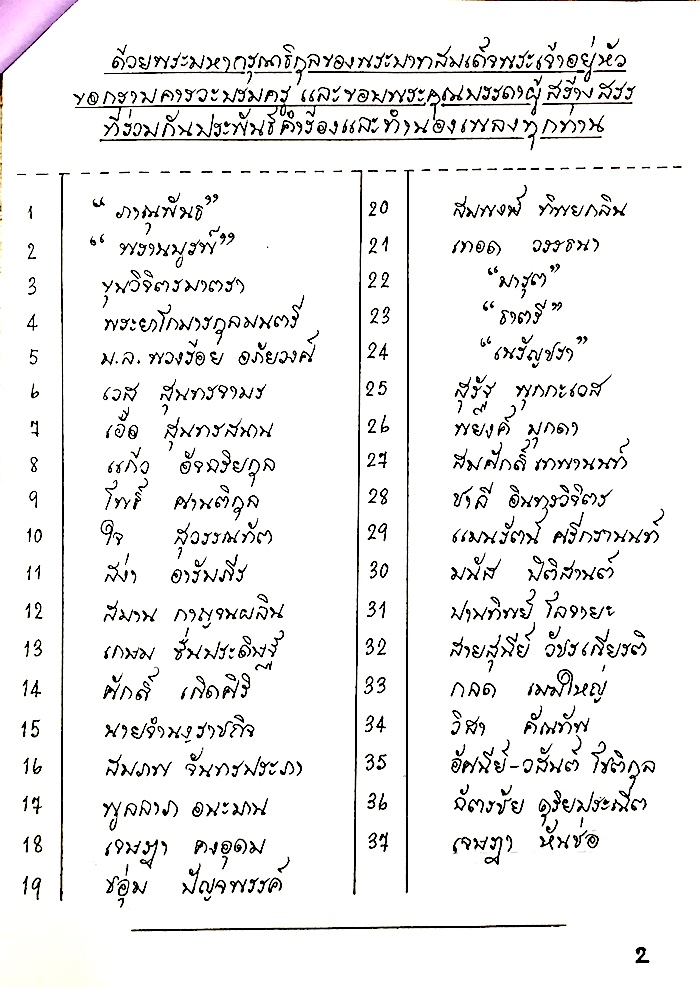 ด้วยพระมหากรุณาธิคุณของพระบาทสมเด็จพระเจ้าอยู่หัว
ขอกราบคารวะบรมครู และขอบพระคุณบรรดาผู้สร้างสรร
ที่ร่วมกันประพันธ์คำร้องและทำนองเพลงทุกท่าน
1 "ภาณุพันธ์"
2 "พรานบูรพ์"
3 ขุนวิจิตรมาตรา
4 พระยาโกมารกุลมนตรี
5 ม.ล. พวงร้อย อภัยวงศ์
6 เวส สุนทรจามร
7 เอื้อ สุนทรสนาน
8 แก้ว อัจฉริยกุล
9 โพธิ์ ศานติกุล
10 ใจ สุวรรณทัต
11 สง่า อารัมภีร
12 สมาน กาญจนผลิน
13 เกษม ชื่นประดิษฐ์
14 ศักดิ์ เกิดศิริ
15 นายจำนงราชกิจ
16 สมภพ จันทรประภา
17 พูลลาภ อนะมาน
18 เจษฎา คงอุดม
19 ชอุ่ม ปัญจพรรค์
20 สมพงษ์ ทิพยกลิน
21 เทอด วรรธนา
22 "มารุต"
23 "ธาตรี"
24 "เนรัญชรา"
25 สุรัฐ พุกกะเวส
26 พยงค์ มุกดา
27 สมศักดิ์ เทพานนท์
28 ชาลี อินทรวิจิตร
29 แมนรัตน์ ศรีกรานนท์
30 มนัส ปิติสานต์
31 ปานทิพย์ โลจายะ
32 สายสุนีย์ วัชรเกียรติ
33 กลด เมฆใหญ่
34 วิสา คัญทัพ
35 อัศนีย์-วสันต์ โชติกุล
36 ฉัตรชัย ดุริยประณีต
37 เจษฎา
2